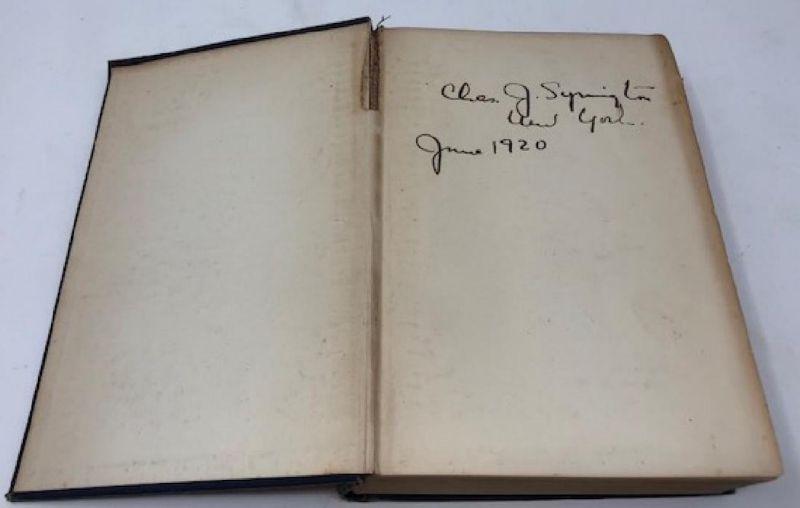 Chas. J. Symington
New York.
June 1920